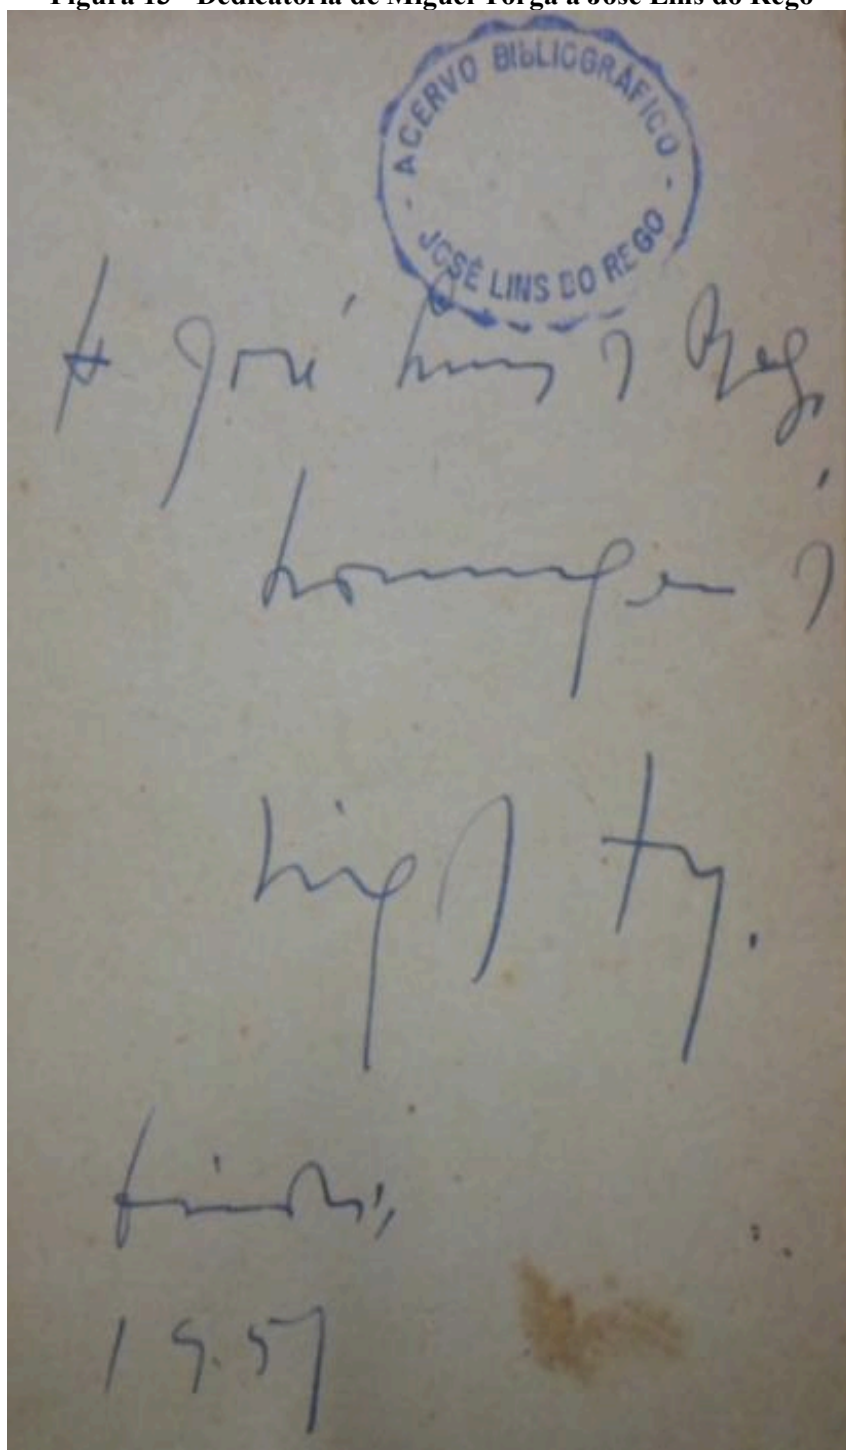 Figura 13 - Dedicatória de Miguel Torga a José Lins do Rego
- ACERVO BIBLIOGRÁFICO -
JOSÉ LINS DO REGO
A José Lins do Rego,
homenagem de
Miguel Torga.
1957